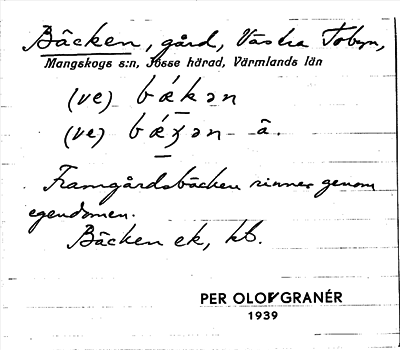 Bäcken, gård, Västra Tobyn,
Mangskogs s:n, Jösse härad, Värmlands län
(ve) bǽkən
(ve) bǽȝən ä.
Framgårdsbäcken rinner genom
egendomen.
Bäcken ek, kb.
PER OLOV GRANÉR
1939